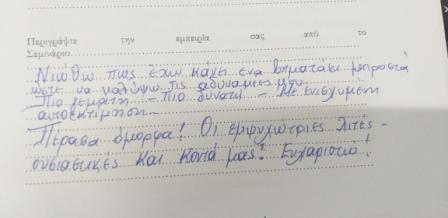 Περιγράψτε την εμπειρία σας από το
Σεμινάριο
Νιώθω πως έχω κάνει ένα βηματάκι μπροστά
ώστε να καλύψω τις αδυναμίες μου.
Πιο γεμάτη - Πιο δυνατή - Με ενισχυμένη
αυτοεκτίμηση
Πέρασα όμορφα! Οι εμψυχώτριες λιτές -
ουσιαστικές και κοντά μας! Ευχαριστώ!